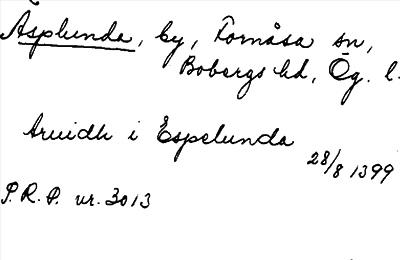 Äsplunda, by, Fornåsa sn,
Bobergs hd, Ög. l.
Aruidh i Espelunda
28/8 1399
P.R.P. nr. 3013